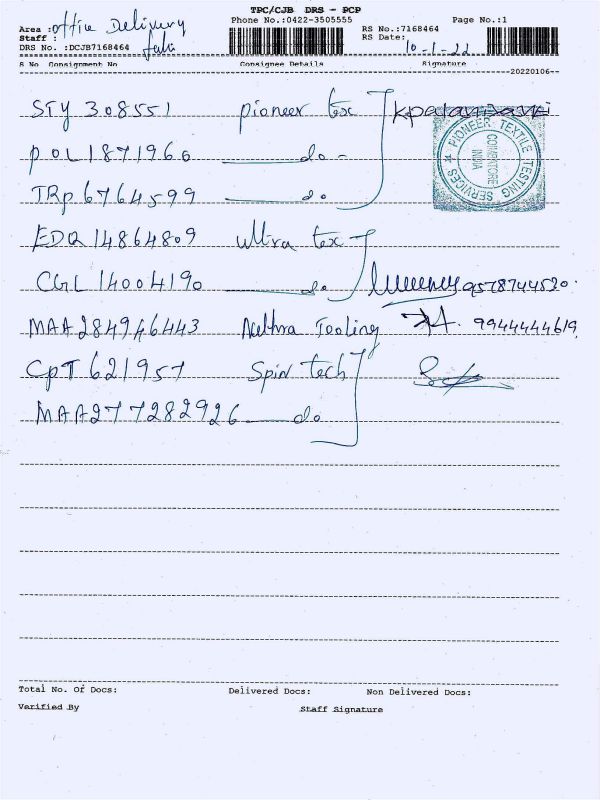 TPC/CJB DRS - PCP
Area : Office Delivery Phone No.:0422-3505555 RS No.:7168464 Page No.:1
Staff :
DRS No. :DCJB7168464 RS Date: 10-1-22
S No Consignment No Consignee Details Signature
20220106
STY 308551 pioneer tex
POL1871966 do -
TRP6764599 do
PIONEER TEXTILE TESTING SERVICES
COIMBATORE
INDIA
EDQ14864809 ultra tex
CGL 14004190 do 9578744520.
MAA284946443 Nethra Tooling 9944444619
CPT 621957 Spin tech
MAA277282926 do
Total No. Of Docs: Delivered Docs: Non Delivered Docs:
Verified By Staff Signature